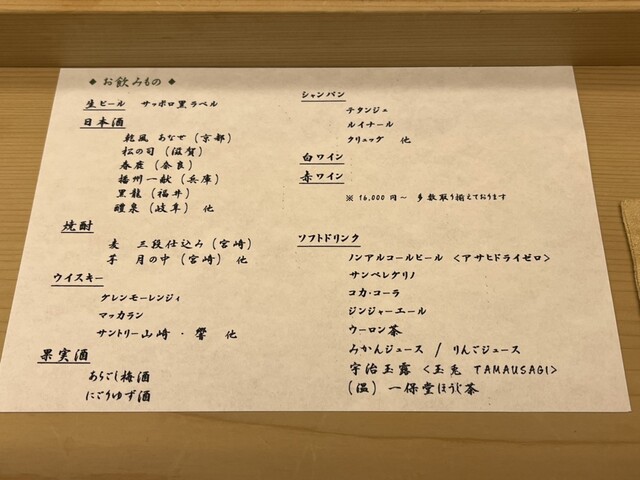 ◆ お飲みもの ◆
生ビール サッポロ黒ラベル
日本酒
乾風 あなぜ (京都)
松の司 (滋賀)
春鹿 (奈良)
播州一献 (兵庫)
黒龍 (福井)
醴泉 (岐阜) 他
焼酎
麦 三段仕込み (宮崎)
芋 月の中 (宮崎) 他
ウイスキー
グレンモーレンジィ
マッカラン
サントリー山崎・響 他
果実酒
あらごし梅酒
にごりゆず酒
シャンパン
テタンジェ
ルイナール
クリュッグ 他
白ワイン
赤ワイン
※ 16,000円~ 多数取り揃えております
ソフトドリンク
ノンアルコールビール <アサヒドライゼロ>
サンペレグリノ
コカ・コーラ
ジンジャーエール
ウーロン茶
みかんジュース / りんごジュース
宇治玉露 <玉兎 TAMAUSAGI>
(温) 一保堂ほうじ茶